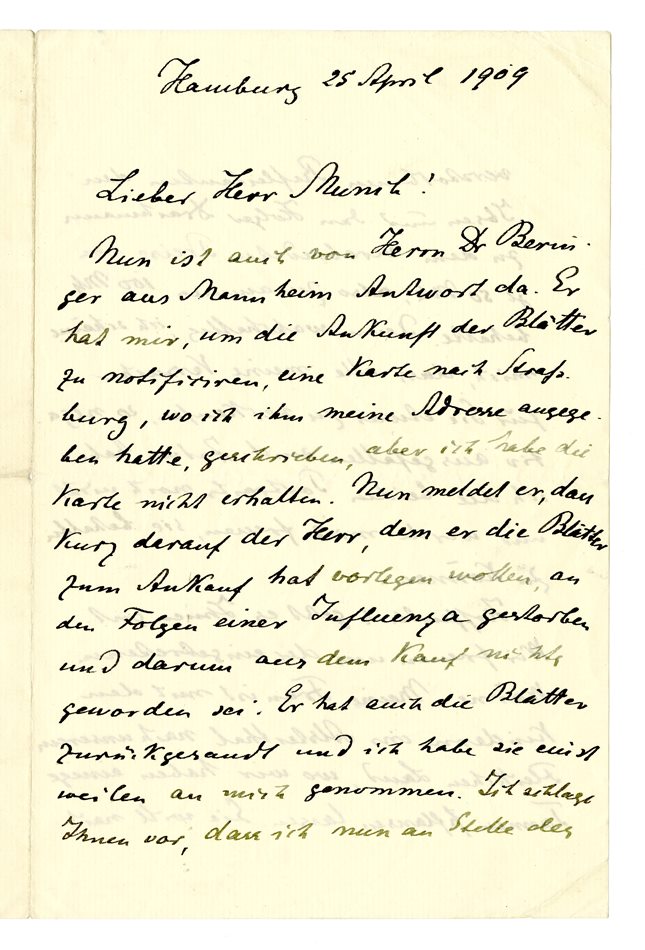 Hamburg 25 April 1909
Lieber Herr Munch!
Nun ist auch von Herrn Dr Berin-
ger aus Mannheim Antwort da. Er
hat mir, um die Ankunft der Blätter
zu notifiriren, eine Karte nach Straß-
burg, wo ich ihm meine Adresse angege-
ben hatte, geschrieben, aber ich habe die
Karte nicht erhalten. Nun meldet er, dass
Kurz darauf der Herr, dem er die Blätter
zum Ankauf hat vorlegen wollen, an
den Folgen einer Influenza gestorben
und darum aus dem Kauf nichts
geworden sei. Er hat auch die Blätter
zurückgesandt und ich habe sie einst
weilen an mich genommen. Ich schlage
Ihnen vor, dass ich nun an Stelle des